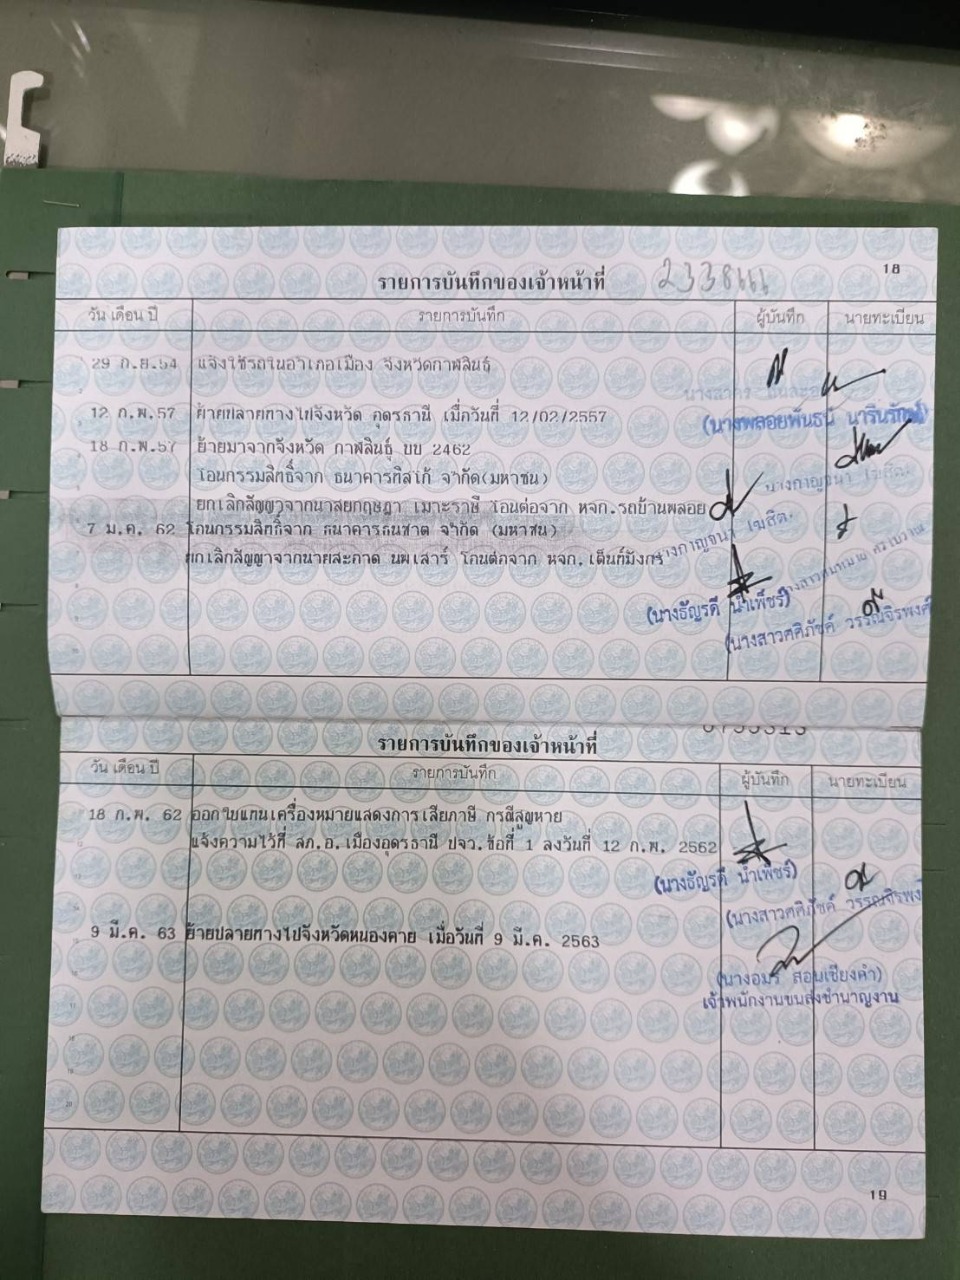 18
รายการบันทึกของเจ้าหน้าที่
วัน เดือน ปี รายการบันทึก ผู้บันทึก นายทะเบียน
29 ก.ย.54 แจ้งใช้รถในอำเภอเมือง จังหวัดกาฬสินธุ์
12 ก.พ.57 ย้ายปลายทางไปจังหวัด อุดรธานี เมื่อวันที่ 12/02/2557
(นางพลอยพันธนี นารินรักษ์)
18 ก.พ.57 ย้ายมาจากจังหวัด กาฬสินธุ์ บบ 2462
โอนกรรมสิทธิ์จาก ธนาคารทิสโก้ จำกัด(มหาชน)
นางกาญจนา โฆสิต
ยกเลิกสัญญาจากนายกฤษฎา เมาะราษี โอนต่อจาก หจก.รถบ้านพลอย
7 ม.ค. 62 โอนกรรมสิทธิ์จาก ธนาคารธนชาต จำกัด (มหาชน)
นางกาญจนา โฆสิต
ยกเลิกสัญญาจากนายสะอาด นพเสาร์ โอนต่อจาก หจก.เต็นท์มังกร
(นางธัญรดี น้ำเพ็ชร์)
(นางสาวศศิภัชค์ วรรณจิรพงศ์
รายการบันทึกของเจ้าหน้าที่
วัน เดือน ปี รายการบันทึก ผู้บันทึก นายทะเบียน
18 ก.พ. 62 ออกใบแทนเครื่องหมายแสดงการเสียภาษี กรณีสูญหาย
แจ้งความไว้ที่ สภ.อ.เมืองอุดรธานี ปจว.ข้อที่ 1 ลงวันที่ 12 ก.พ. 2562
(นางธัญรดี น้ำเพ็ชร์)
(นางสาวศศิภัชค์ วรรณจิรพงศ์
9 มี.ค. 63 ย้ายปลายทางไปจังหวัดหนองคาย เมื่อวันที่ 9 มี.ค. 2563
(นางอมร สอนเชียงคำ)
เจ้าพนักงานขนส่งชำนาญงาน
19